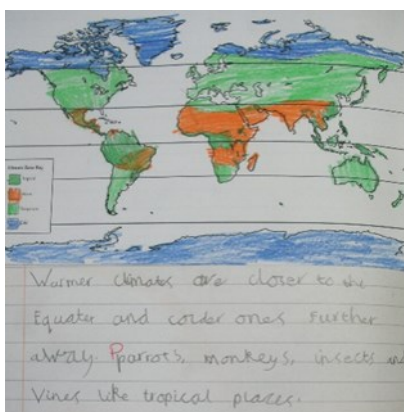 Warmer climates are closer to the
Equater and colder ones further
away. Pparrots, monkeys, insects and
Vines like tropical places.